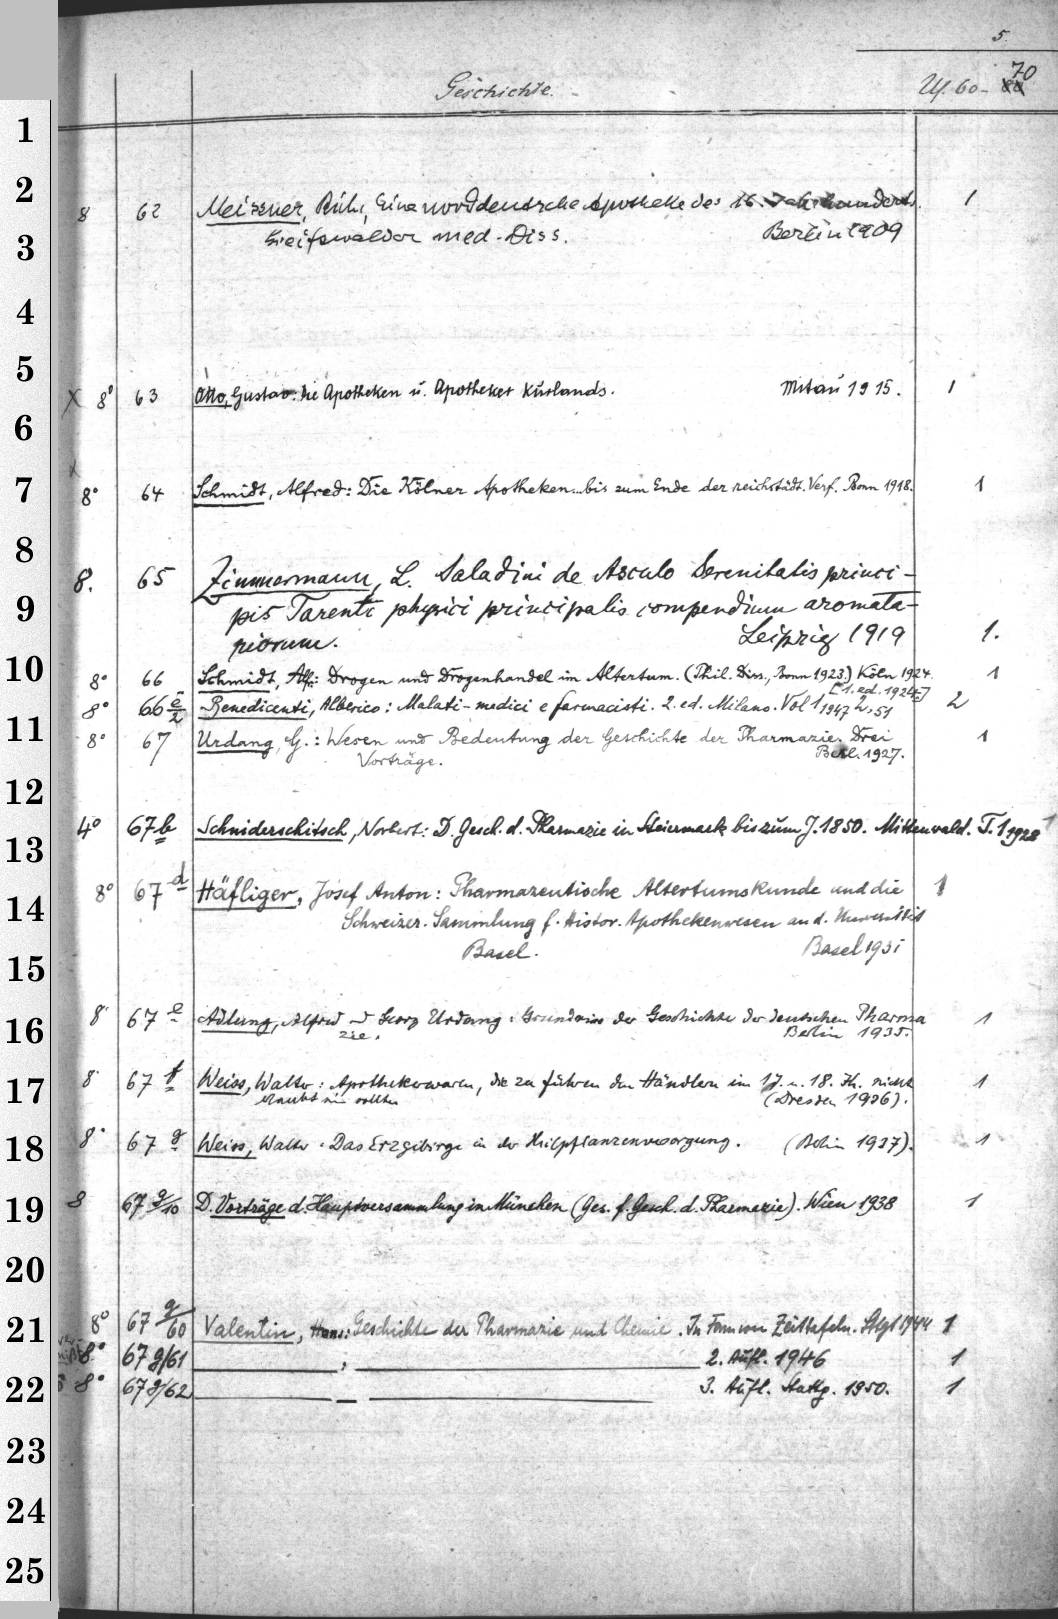 5.
Geschichte. Uf. 60- 70
1
2
8 62 Meissner, Rich., Eine norddeutsche Apotheke des 16. Jahrhunderts. 1
3
Greifswalder med. Diss. Berlin 1909
4
5
X 8° 63 Otto, Gustav: Die Apotheken u. Apotheker Kurlands. Mitau 1915. 1
6
x
7
8° 64 Schmidt, Alfred: Die Kölner Apotheken... bis zum Ende der reichsstädt. Verf. Bonn 1918. 1
8
8. 65 Zimmermann, L. Saladini de Asculo Serenitatis princi-
9
pis Tarenti physici principalis compendium aromata-
riorum. Leipzig 1919 1.
10
8° 66 Schmidt, Alfr.: Drogen und Drogenhandel im Altertum. (Phil. Diss., Bonn 1923.) Köln 1924. 1
[1. ed. 1924-]
8° 66 c/2 Benedicenti, Alberico: Malati-medici e farmacisti. 2. ed. Milano. Vol 1 1947 2, 51 2
11
8° 67 Urdang, G.: Wesen und Bedeutung der Geschichte der Pharmazie. Drei 1
Vorträge. Berl. 1927.
12
4° 67 b Schniderschitsch, Norbert: D. Gesch. d. Pharmazie in Steiermark bis zum J. 1850. Mittenwald. T. 1 1928 1
13
8° 67 d Häfliger, Josef Anton: Pharmazeutische Altertumskunde und die 1
14
Schweizer. Sammlung f. Histor. Apothekenwesen an d. Universität
15
Basel. Basel 1931
8° 67 e Adlung, Alfred u Georg Urdang: Grundriss der Geschichte der deutschen Pharma 1
16
zie. Berlin 1935.
8° 67 f Weiss, Walter: Apothekerwaren, die zu führen den Händlern im 17. u. 18. Jh. nicht 1
17
erlaubt sein sollten (Dresden 1936).
18
8° 67 g Weiss, Walter: Das Erzgebirge in der Heilpflanzenversorgung. (Berlin 1937). 1
19
8 67 g/10 D. Vorträge d. Hauptversammlung in München (Ges. f. Gesch. d. Pharmazie). Wien 1938 1
20
21
8° 67 g/60 Valentin, Hans: Geschichte der Pharmazie und Chemie. In Form von Zeittafeln. Stgt 1944 1
8° 67 g/61 , 2. Aufl. 1946 1
22
8° 67 g/62 3. Aufl. Stuttg. 1950. 1
23
24
25